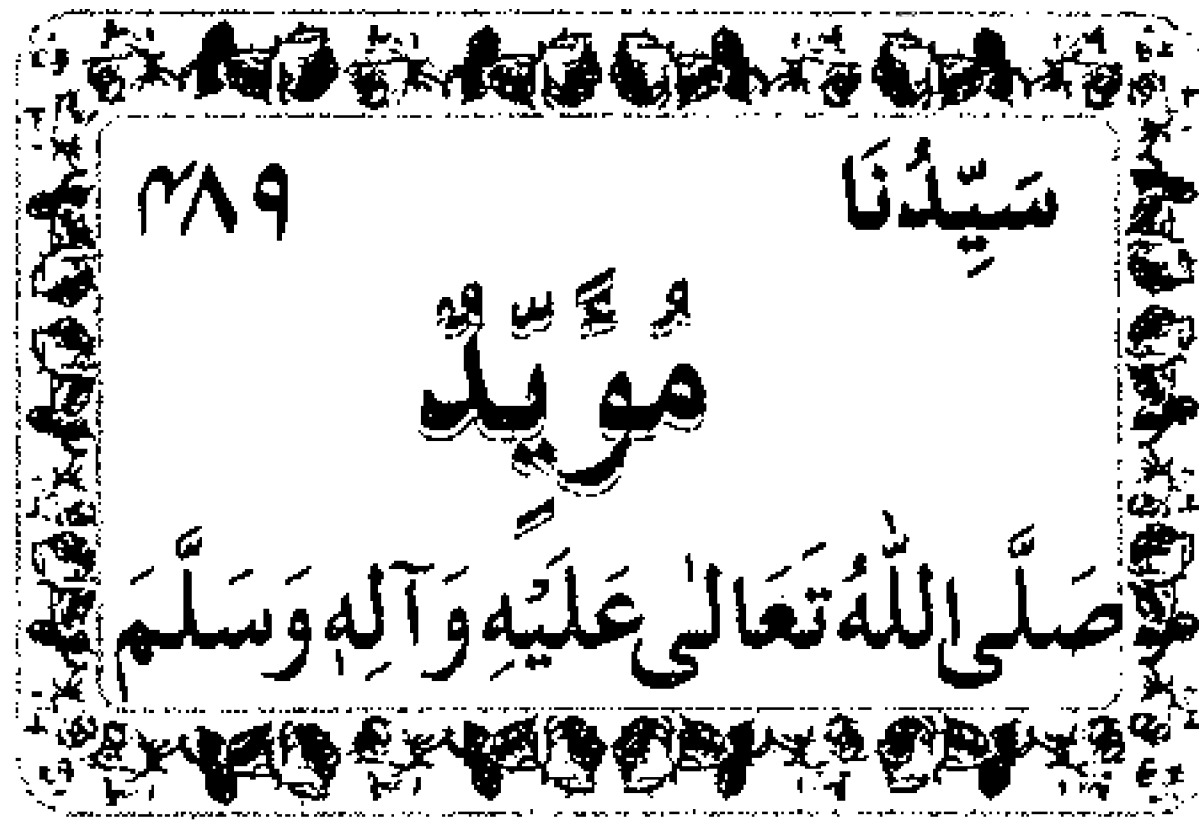 سَيِّدُنَا ۳۸۹
مُؤَيِّدٌ
صَلَّى اللّٰهُ تَعَالىٰ عَلَيْهِ وَآلِهٖ وَسَلَّمَ